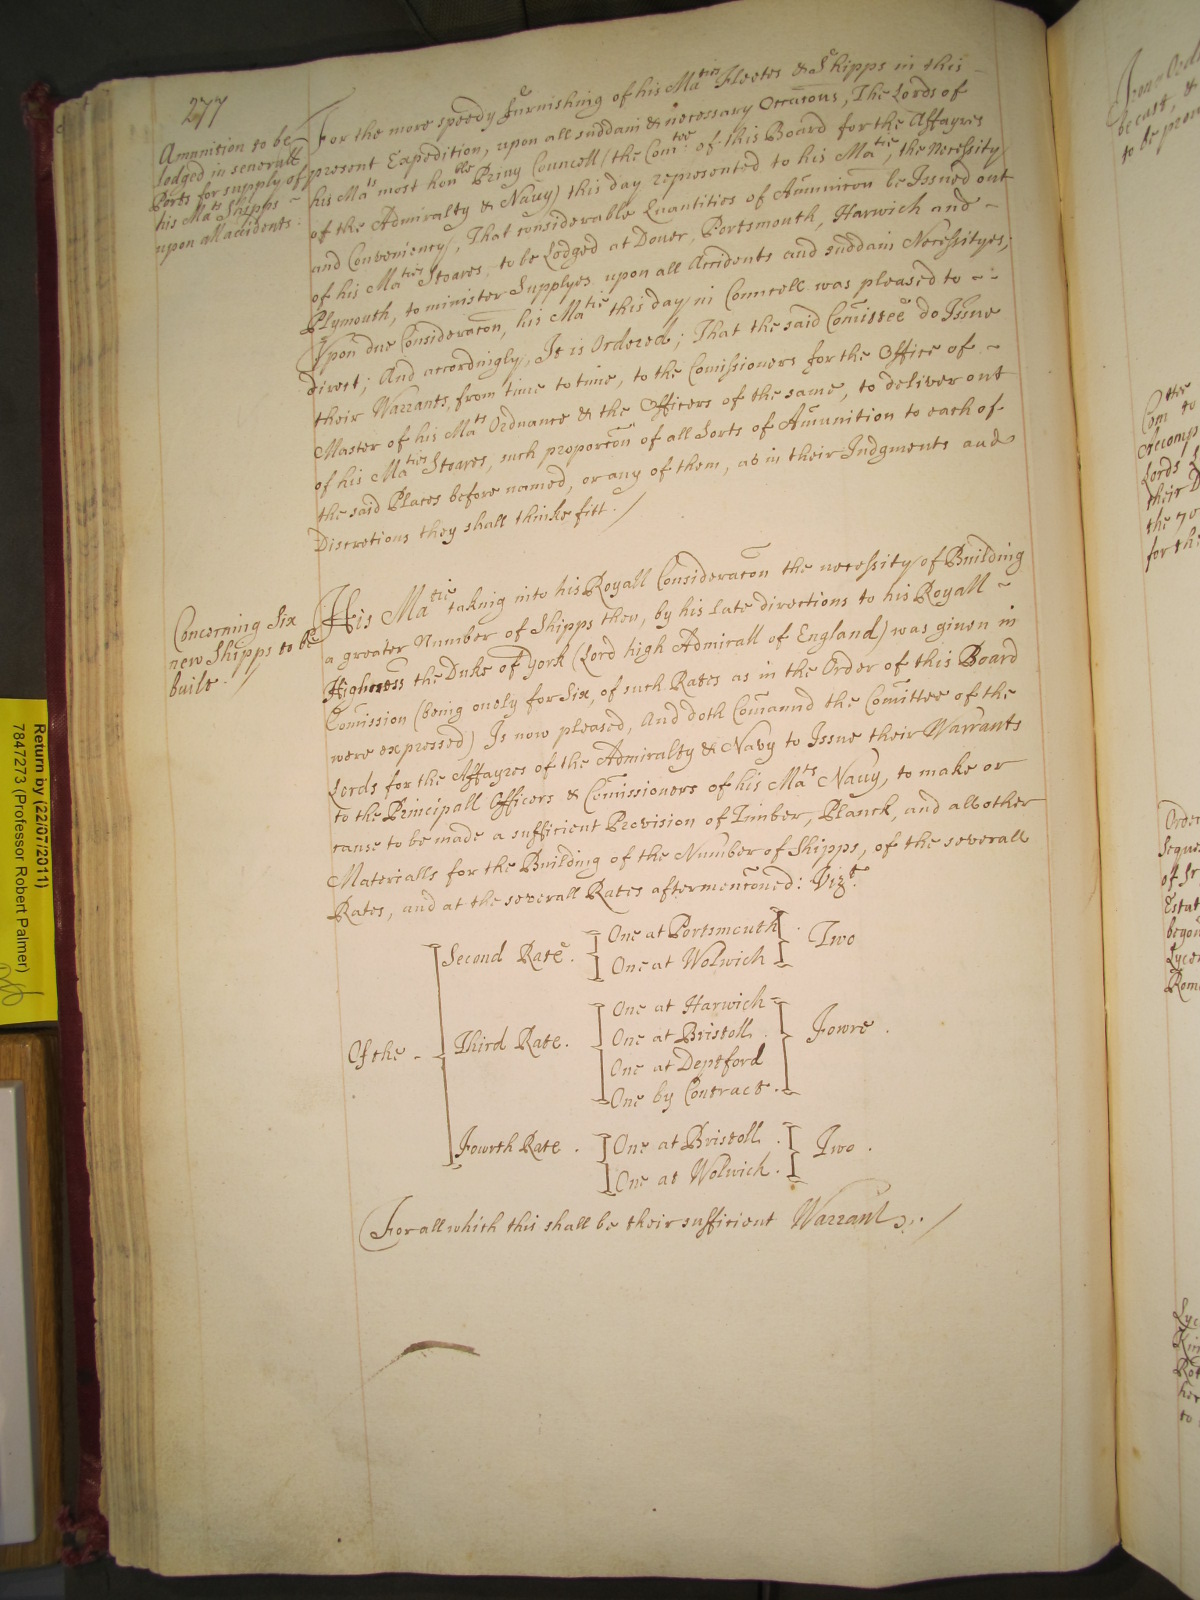 277
Amunition to be
lodged in severall
Ports for supply of
his Mats Shipps ~
upon all accidents.
For the more speedy Furnishing of his Maties Fleetes & Shipps in this
present Expedition, upon all suddain & necessary Occasions, The Lords of
his Mats most honble Privy Councell (the Comtee of this Board for the Affayres
of the Admiralty & Navy) this day represented to his Matie, the Necessity
and Conveniency, That considerable Quantities of Amunicon be Issued out
of his Maties Stoares, to be Lodged at Dover, Portsmouth, Harwich and ~
Plymouth, to minister Supplyes upon all Accidents and suddain Necessityes;
Upon due Consideracon, his Matie this day in Councell was pleased to ~ ~
direct; And accordingly, It is Ordered; That the said Comittee do Issue
their Warrants, from time to time, to the Comissioners for the Office of ~
Master of his Mats Ordnance & the Officers of the same, to deliver out
of his Maties Stoares, such proporcon of all Sorts of Amunition to each of
the said Places before named, or any of them, as in their Judgments and
Discretions they shall thinke fitt. /
Concerning Six
new Shipps to be
built. /
His Matie taking into his Royall Consideracon the necessity of Building
a greater Number of Shipps then, by his Late directions to his Royall ~
Highness the Duke of York (Lord high Admirall of England) was given in
Comission (being onely for Six, of such Rates as in the Order of this Board
were expressed) Is now pleased, And doth Comannd the Comittee of the
Lords for the Affayres of the Admiralty & Navy to Issue their Warrants
to the Principall Officers & Comissioners of his Mats Navy, to make or
cause to be made a sufficient Provision of Timber, Planck, and all other
Materialls for the Building of the Number of Shipps, of the severall
Rates, and at the severall Rates aftermenconed: Vizt.
Of the -
Second Rate. One at Portsmouth
One at Wolwich Two
Third Rate. One at Harwich
One at Bristoll
One at Deptford
One by Contract. Fowre.
Fowrth Rate. One at Bristoll.
One at Wolwich. Two.
For all which this shall be their sufficient Warrant. /
Return by (22/07/2011)
7847273 (Professor Robert Palmer)
be cast, &
Comtee to
Lords
their
the
for the
Order
Seque
of Sr
Estat
begon